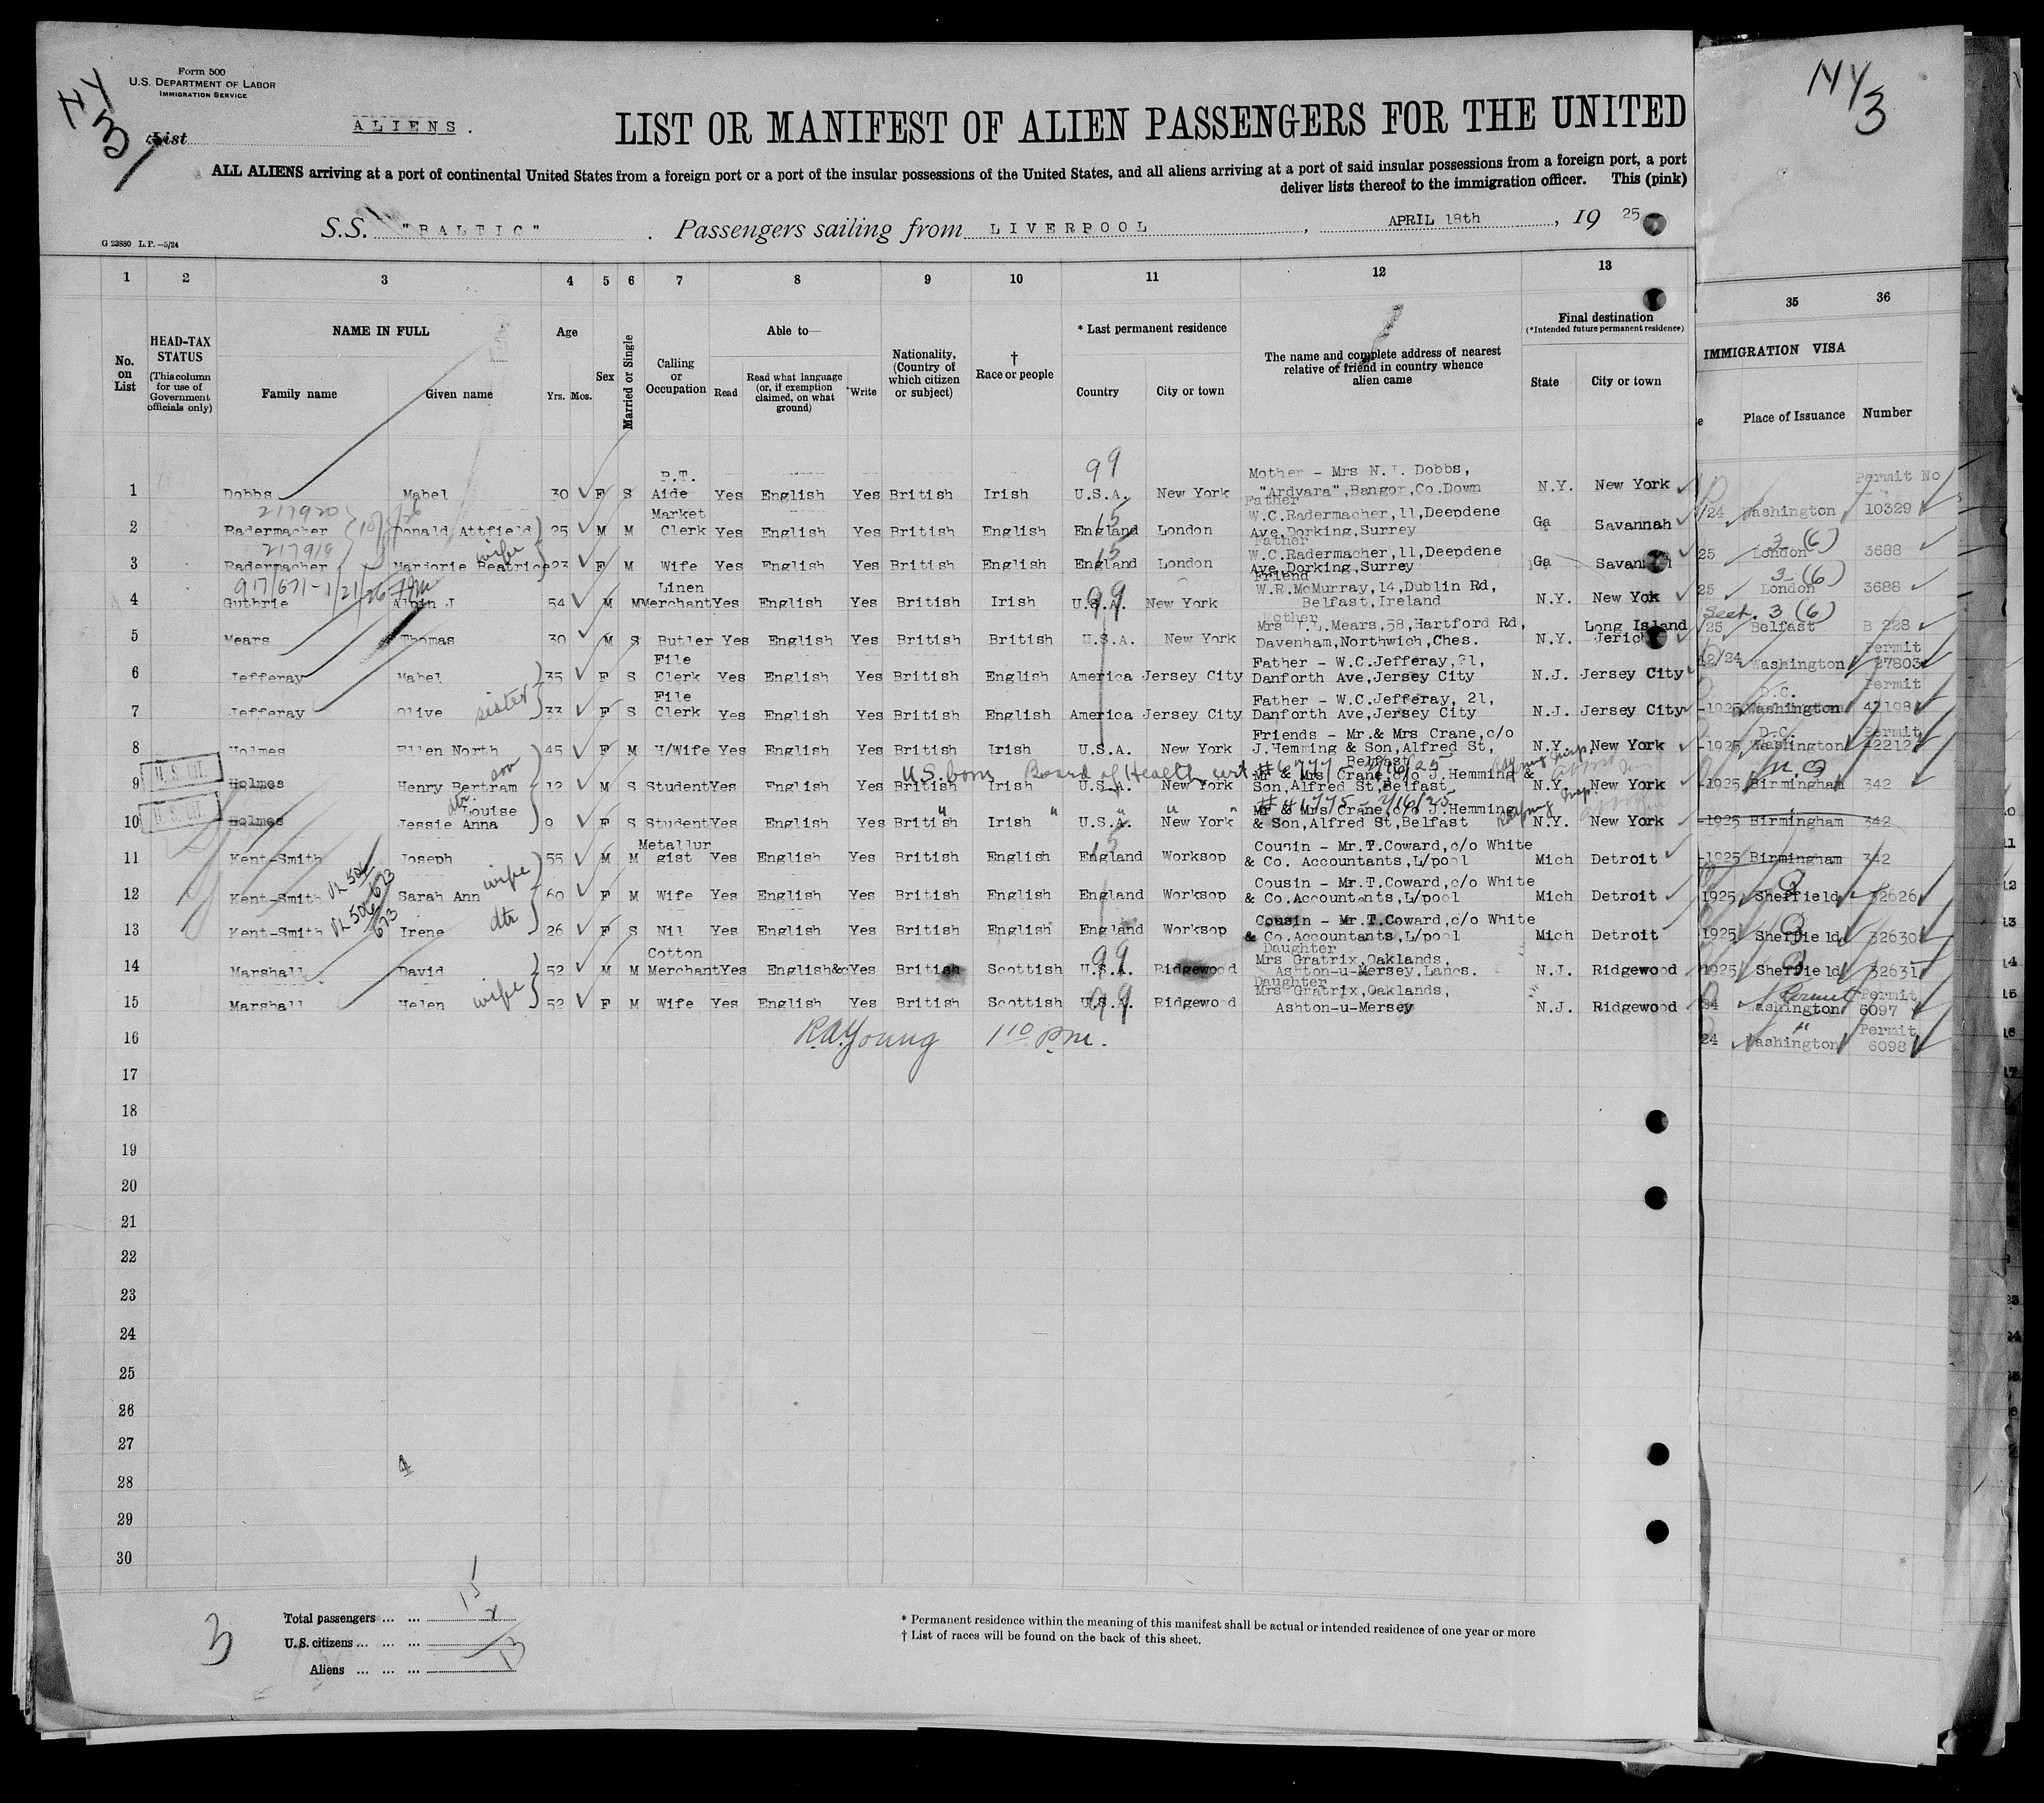 Form 500
U.S. DEPARTMENT OF LABOR
IMMIGRATION SERVICE
NY
3
NY
3
List
ALIENS.
LIST OR MANIFEST OF ALIEN PASSENGERS FOR THE UNITED
ALL ALIENS arriving at a port of continental United States from a foreign port or a port of the insular possessions of the United States, and all aliens arriving at a port of said insular possessions from a foreign port, a port
deliver lists thereof to the immigration officer. This (pink)
S.S. "BALTIC". Passengers sailing from LIVERPOOL, APRIL 18th, 19 25
G 23880 L.P.—5/24
1 2 3 4 5 6 7 8 9 10 11 12 13 35 36
No. on List
HEAD-TAX STATUS
(This column for use of Government officials only)
NAME IN FULL
Family name Given name
Age
Yrs. Mos.
Sex
Married or Single
Calling or Occupation
Able to—
Read
Read what language (or, if exemption claimed, on what ground)
Write
Nationality, (Country of which citizen or subject)
† Race or people
* Last permanent residence
Country City or town
The name and complete address of nearest relative or friend in country whence alien came
Final destination
(*Intended future permanent residence)
State City or town
IMMIGRATION VISA
Place of Issuance Number
1 Dobbs Mabel 30 F S P.T. Aide Yes English Yes British Irish U.S.A. New York Mother - Mrs N.I. Dobbs, "Ardvara",Bangor,Co.Down N.Y. New York
99
217920
2 Radermacher Donald Attfield 25 M M Market Clerk Yes English Yes British English England London Father W.C.Radermacher,11,Deepdene Ave,Dorking,Surrey Ga Savannah
15
217919
3 Radermacher Marjorie Beatrice wife 23 F M Wife Yes English Yes British English England London Father W.C.Radermacher,11,Deepdene Ave,Dorking,Surrey Ga
15
917/671-1/21/26
4 Guthrie Alpin J 54 M M Linen Merchant Yes English Yes British Irish U.S.A. New York Friend W.R.McMurray,14,Dublin Rd, Belfast,Ireland N.Y. New Yok
99
5 Mears Thomas 30 M S Butler Yes English Yes British British U.S.A. New York Mother Mrs Mears,58,Hartford Rd, Davenham,Northwich,Ches. N.Y. Long Island
6 Jefferay Mabel 35 F S File Clerk Yes English Yes British English America Jersey City Father - W.C.Jefferay,21, Danforth Ave,Jersey City N.J. Jersey City
7 Jefferay Olive sister 33 F S File Clerk Yes English Yes British English America Jersey City Father - W.C.Jefferay, 21, Danforth Ave,Jersey City N.J. Jersey City
8 Holmes Ellen North 45 F M H/Wife Yes English Yes British Irish U.S.A. New York Friends - Mr.& Mrs Crane,c/o J.Hemming & Son,Alfred St, Belfast N.Y. New York
U.S. born Board of Health cert
9 Holmes Henry Bertram son 12 M S Student Yes English Yes British Irish U.S.A. New York Mr & Mrs Crane,c/o J.Hemming & Son,Alfred St,Belfast N.Y. New York
10 Holmes Jessie Anna Louise dtr. 9 F S Student Yes English Yes British Irish U.S.A. New York Mr & Mrs Crane,c/o J.Hemming & Son,Alfred St,Belfast N.Y. New York
11 Kent-Smith Joseph 55 M M Metallurgist Yes English Yes British English England Worksop Cousin - Mr.T.Coward,c/o White & Co. Accountants,L/pool Mich Detroit
12 Kent-Smith Sarah Ann wife 60 F M Wife Yes English Yes British English England Worksop Cousin - Mr.T.Coward,c/o White & Co.Accountants,L/pool Mich Detroit
13 Kent-Smith Irene dtr 26 F S Nil Yes English Yes British English England Worksop Cousin - Mr.T.Coward,c/o White & Co.Accountants,L/pool Mich Detroit
14 Marshall David 52 M M Cotton Merchant Yes English&c Yes British Scottish U.S.A. Ridgewood Daughter Mrs Gratrix,Oaklands, Ashton-u-Mersey,Lancs. N.J. Ridgewood
99
15 Marshall Helen wife 52 F M Wife Yes English Yes British Scottish U.S.A. Ridgewood Daughter Mrs Gratrix,Oaklands, Ashton-u-Mersey N.J. Ridgewood
99
16 R.A.Young 1 10 p.m.
17
18
19
20
21
22
23
24
25
26
27
28
29
30
4
Permit No
/24 Washington 10329
25 London 3 (6) 3688
25 London 3 (6) 3688
/25 Belfast 3 (6) B 228
12/24 Washington Permit 27803
-1925 Washington D.C. Permit 42198
-1925 Washington D.C. Permit 42212
-1925 Birmingham 342
-1925 Birmingham 342
-1925 Birmingham 342
1925 Sheffield 32626
1925 Sheffield 32630
1925 Sheffield 32631
Washington Permit 6097
24 Washington Permit 6098
3
Total passengers ... ... 15
U.S. citizens ... ... ... 2
Aliens ... ... ... 13
* Permanent residence within the meaning of this manifest shall be actual or intended residence of one year or more
† List of races will be found on the back of this sheet.